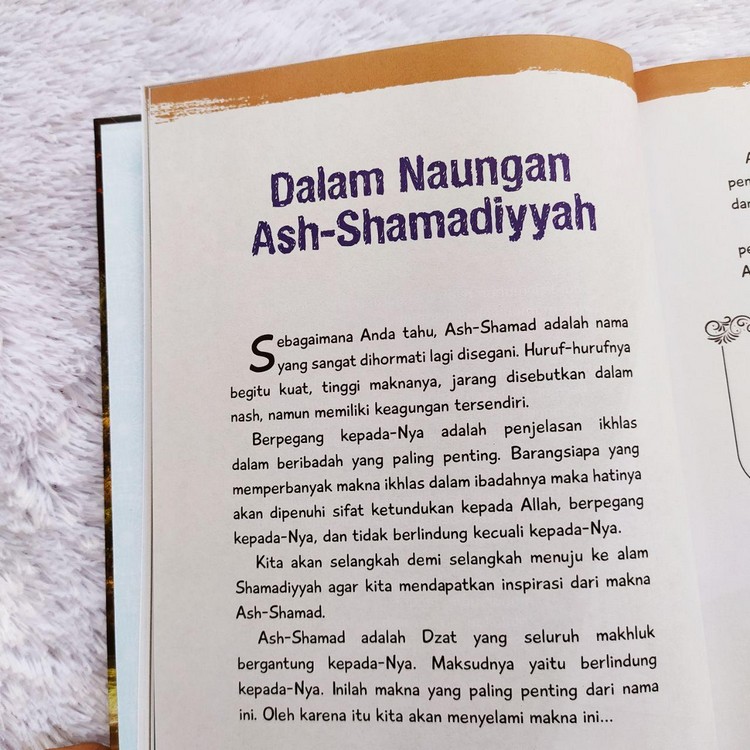 Dalam Naungan
Ash-Shamadiyyah
Sebagaimana Anda tahu, Ash-Shamad adalah nama
yang sangat dihormati lagi disegani. Huruf-hurufnya
begitu kuat, tinggi maknanya, jarang disebutkan dalam
nash, namun memiliki keagungan tersendiri.
Berpegang kepada-Nya adalah penjelasan ikhlas
dalam beribadah yang paling penting. Barangsiapa yang
memperbanyak makna ikhlas dalam ibadahnya maka hatinya
akan dipenuhi sifat ketundukan kepada Allah, berpegang
kepada-Nya, dan tidak berlindung kecuali kepada-Nya.
Kita akan selangkah demi selangkah menuju ke alam
Shamadiyyah agar kita mendapatkan inspirasi dari makna
Ash-Shamad.
Ash-Shamad adalah Dzat yang seluruh makhluk
bergantung kepada-Nya. Maksudnya yaitu berlindung
kepada-Nya. Inilah makna yang paling penting dari nama
ini. Oleh karena itu kita akan menyelami makna ini...